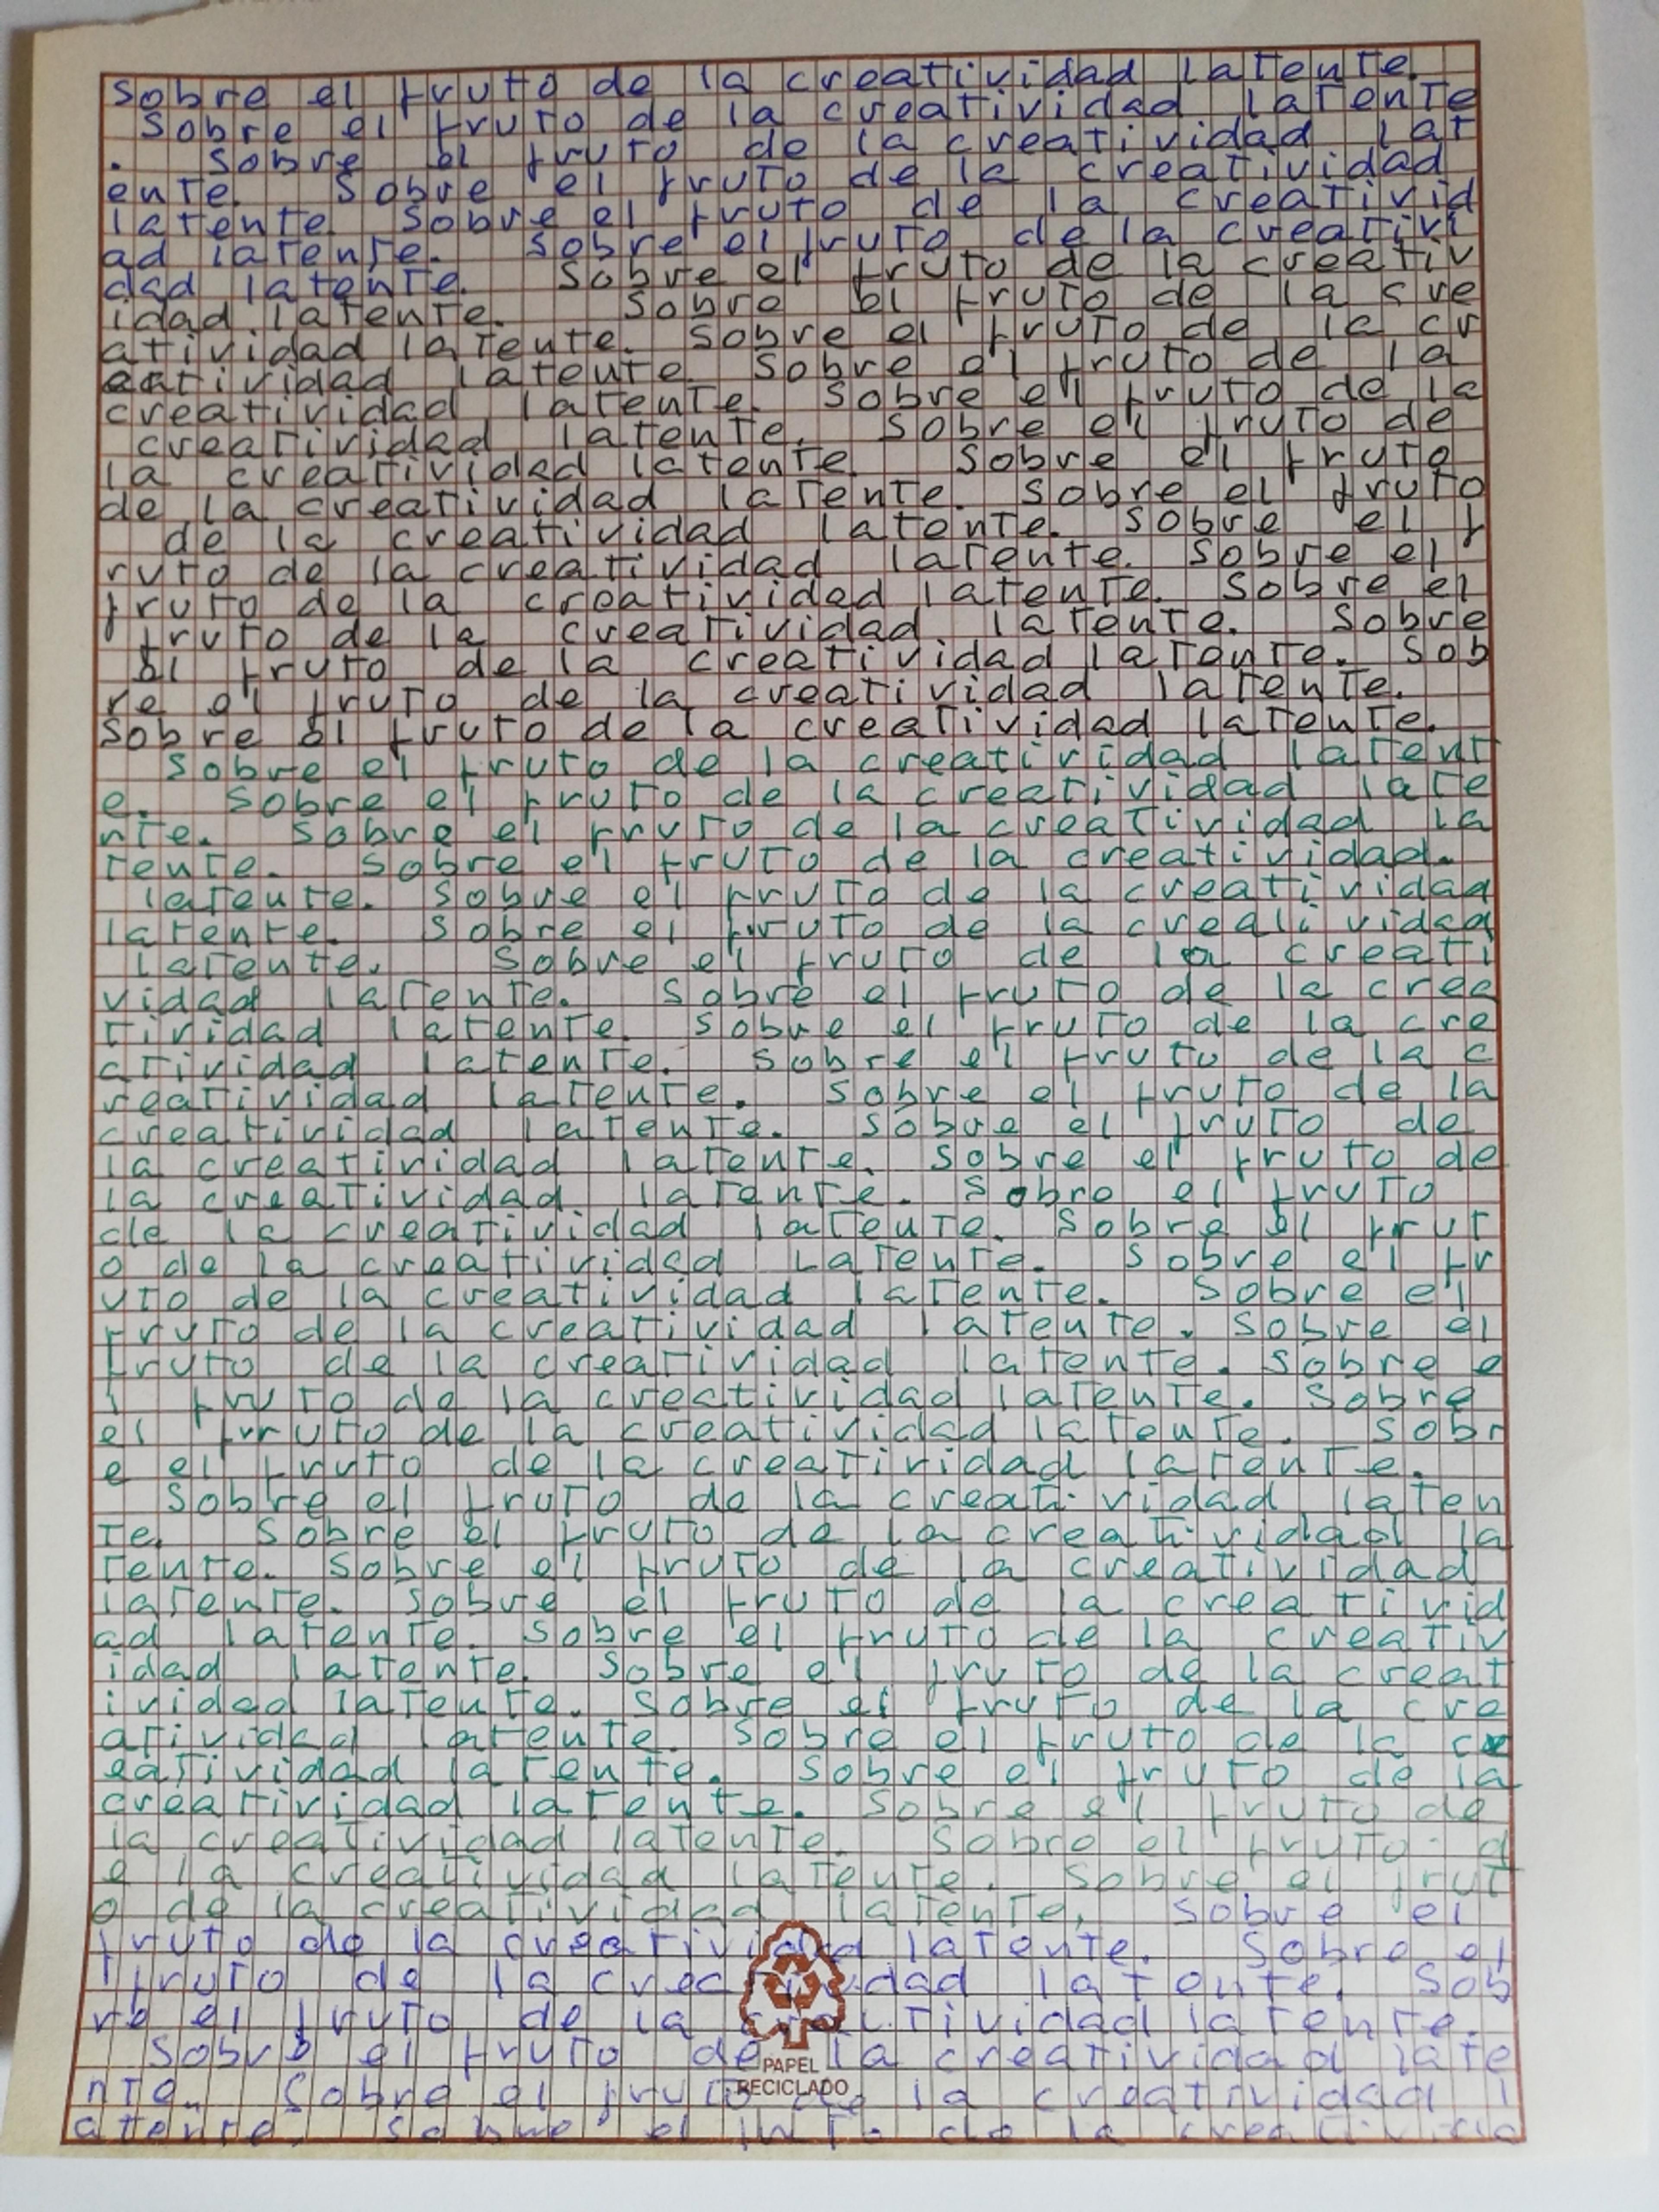 sobre el fruto de la creatividad latente.
sobre el fruto de la creatividad latente
. sobre el fruto de la creatividad lat
ente. sobre el fruto de la creatividad
latente. sobre el fruto de la creativid
ad latente. sobre el fruto de la creativi
dad latente. sobre el fruto de la creativ
idad latente. sobre el fruto de la cre
atividad latente. sobre el fruto de la cr
eatividad latente. sobre el fruto de la
creatividad latente. sobre el fruto de la
creatividad latente. sobre el fruto de
la creatividad latente. sobre el fruto
de la creatividad latente. sobre el fruto
de la creatividad latente. sobre el f
ruto de la creatividad latente. sobre el
fruto de la creatividad latente. sobre el
fruto de la creatividad latente. sobre
el fruto de la creatividad latente. sob
re el fruto de la creatividad latente.
sobre el fruto de la creatividad latente.
sobre el fruto de la creatividad latent
e. sobre el fruto de la creatividad late
nte. sobre el fruto de la creatividad la
tente. sobre el fruto de la creatividad.
latente. sobre el fruto de la creatividad
latente. sobre el fruto de la creatividad
latente. sobre el fruto de la creati
vidad latente. sobre el fruto de la crea
tividad latente. sobre el fruto de la cre
atividad latente. sobre el fruto de la c
reatividad latente. sobre el fruto de la
creatividad latente. sobre el fruto de
la creatividad latente. sobre el fruto de
la creatividad latente. sobre el fruto
de la creatividad latente. sobre el frut
o de la creatividad latente. sobre el fr
uto de la creatividad latente. sobre el
fruto de la creatividad latente. sobre el
fruto de la creatividad latente. sobre e
l fruto de la creatividad latente. sobre
el fruto de la creatividad latente. sobr
e el fruto de la creatividad latente.
sobre el fruto de la creatividad laten
te. sobre el fruto de la creatividad la
tente. sobre el fruto de la creatividad
latente. sobre el fruto de la creativid
ad latente. sobre el fruto de la creativ
idad latente. sobre el fruto de la creat
ividad latente. sobre el fruto de la cre
atividad latente. sobre el fruto de la cr
eatividad latente. sobre el fruto de la
creatividad latente. sobre el fruto de
la creatividad latente. sobre el fruto d
e la creatividad latente. sobre el frut
o de la creatividad latente. sobre el
fruto de la creatividad latente. sobre el
fruto de la creatividad latente. sob
re el fruto de la creatividad latente.
sobre el fruto de la creatividad late
nte. sobre el fruto de la creatividad l
atente. sobre el fruto de la creativida
PAPEL
RECICLADO